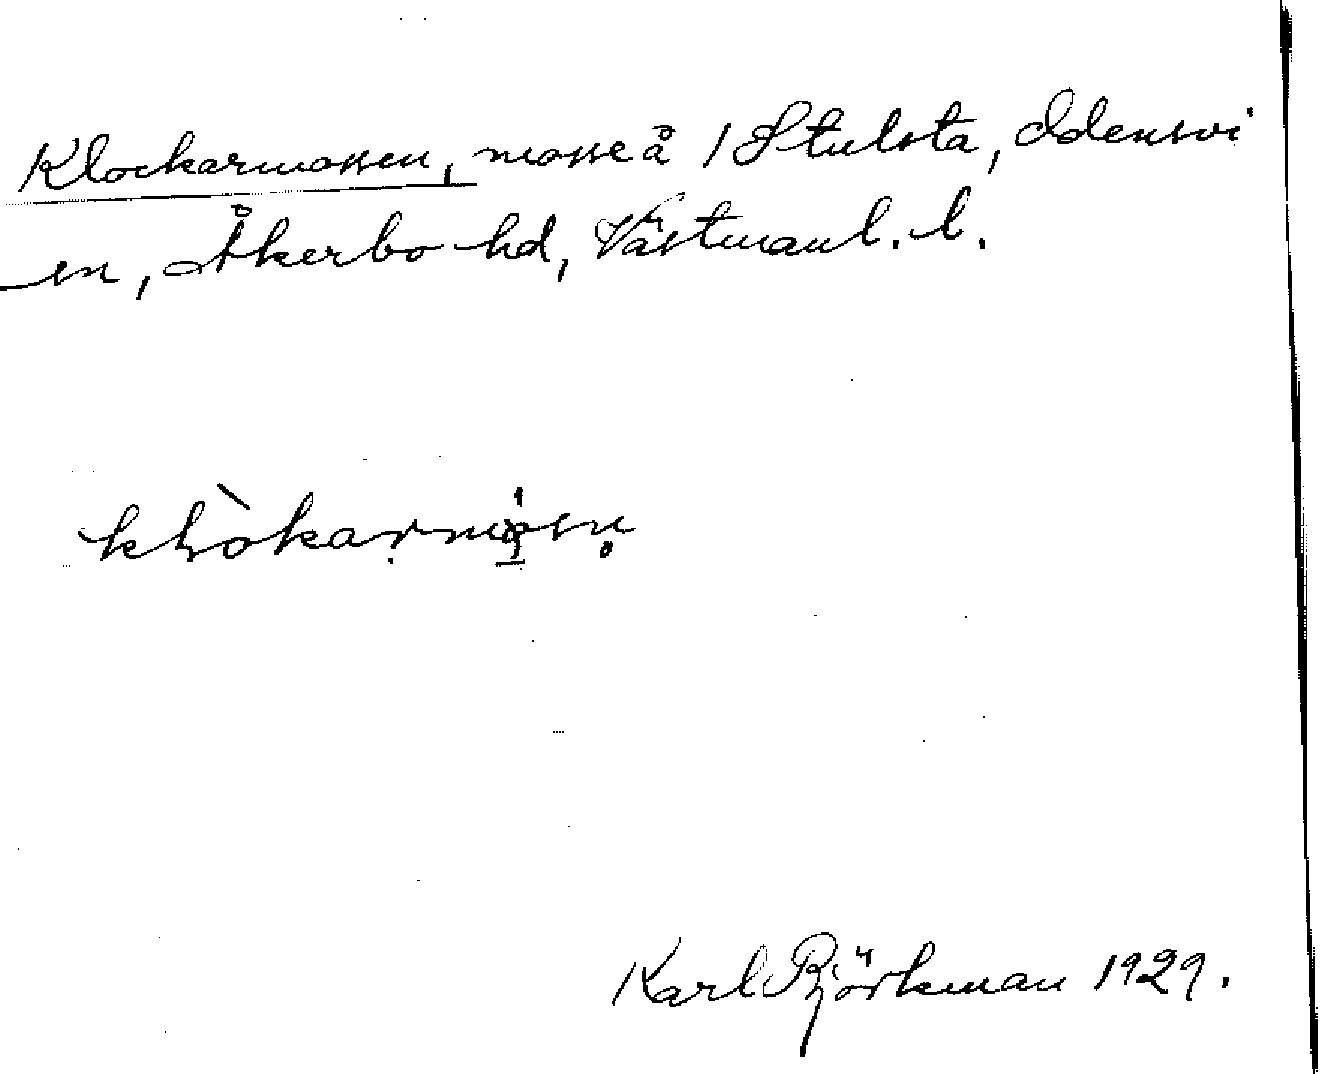 Klockarmossen, mosse å 1 Stulsta, Odensvi
sn, Åkerbo hd, Västmanl. l.
Karl Björkman 1929.